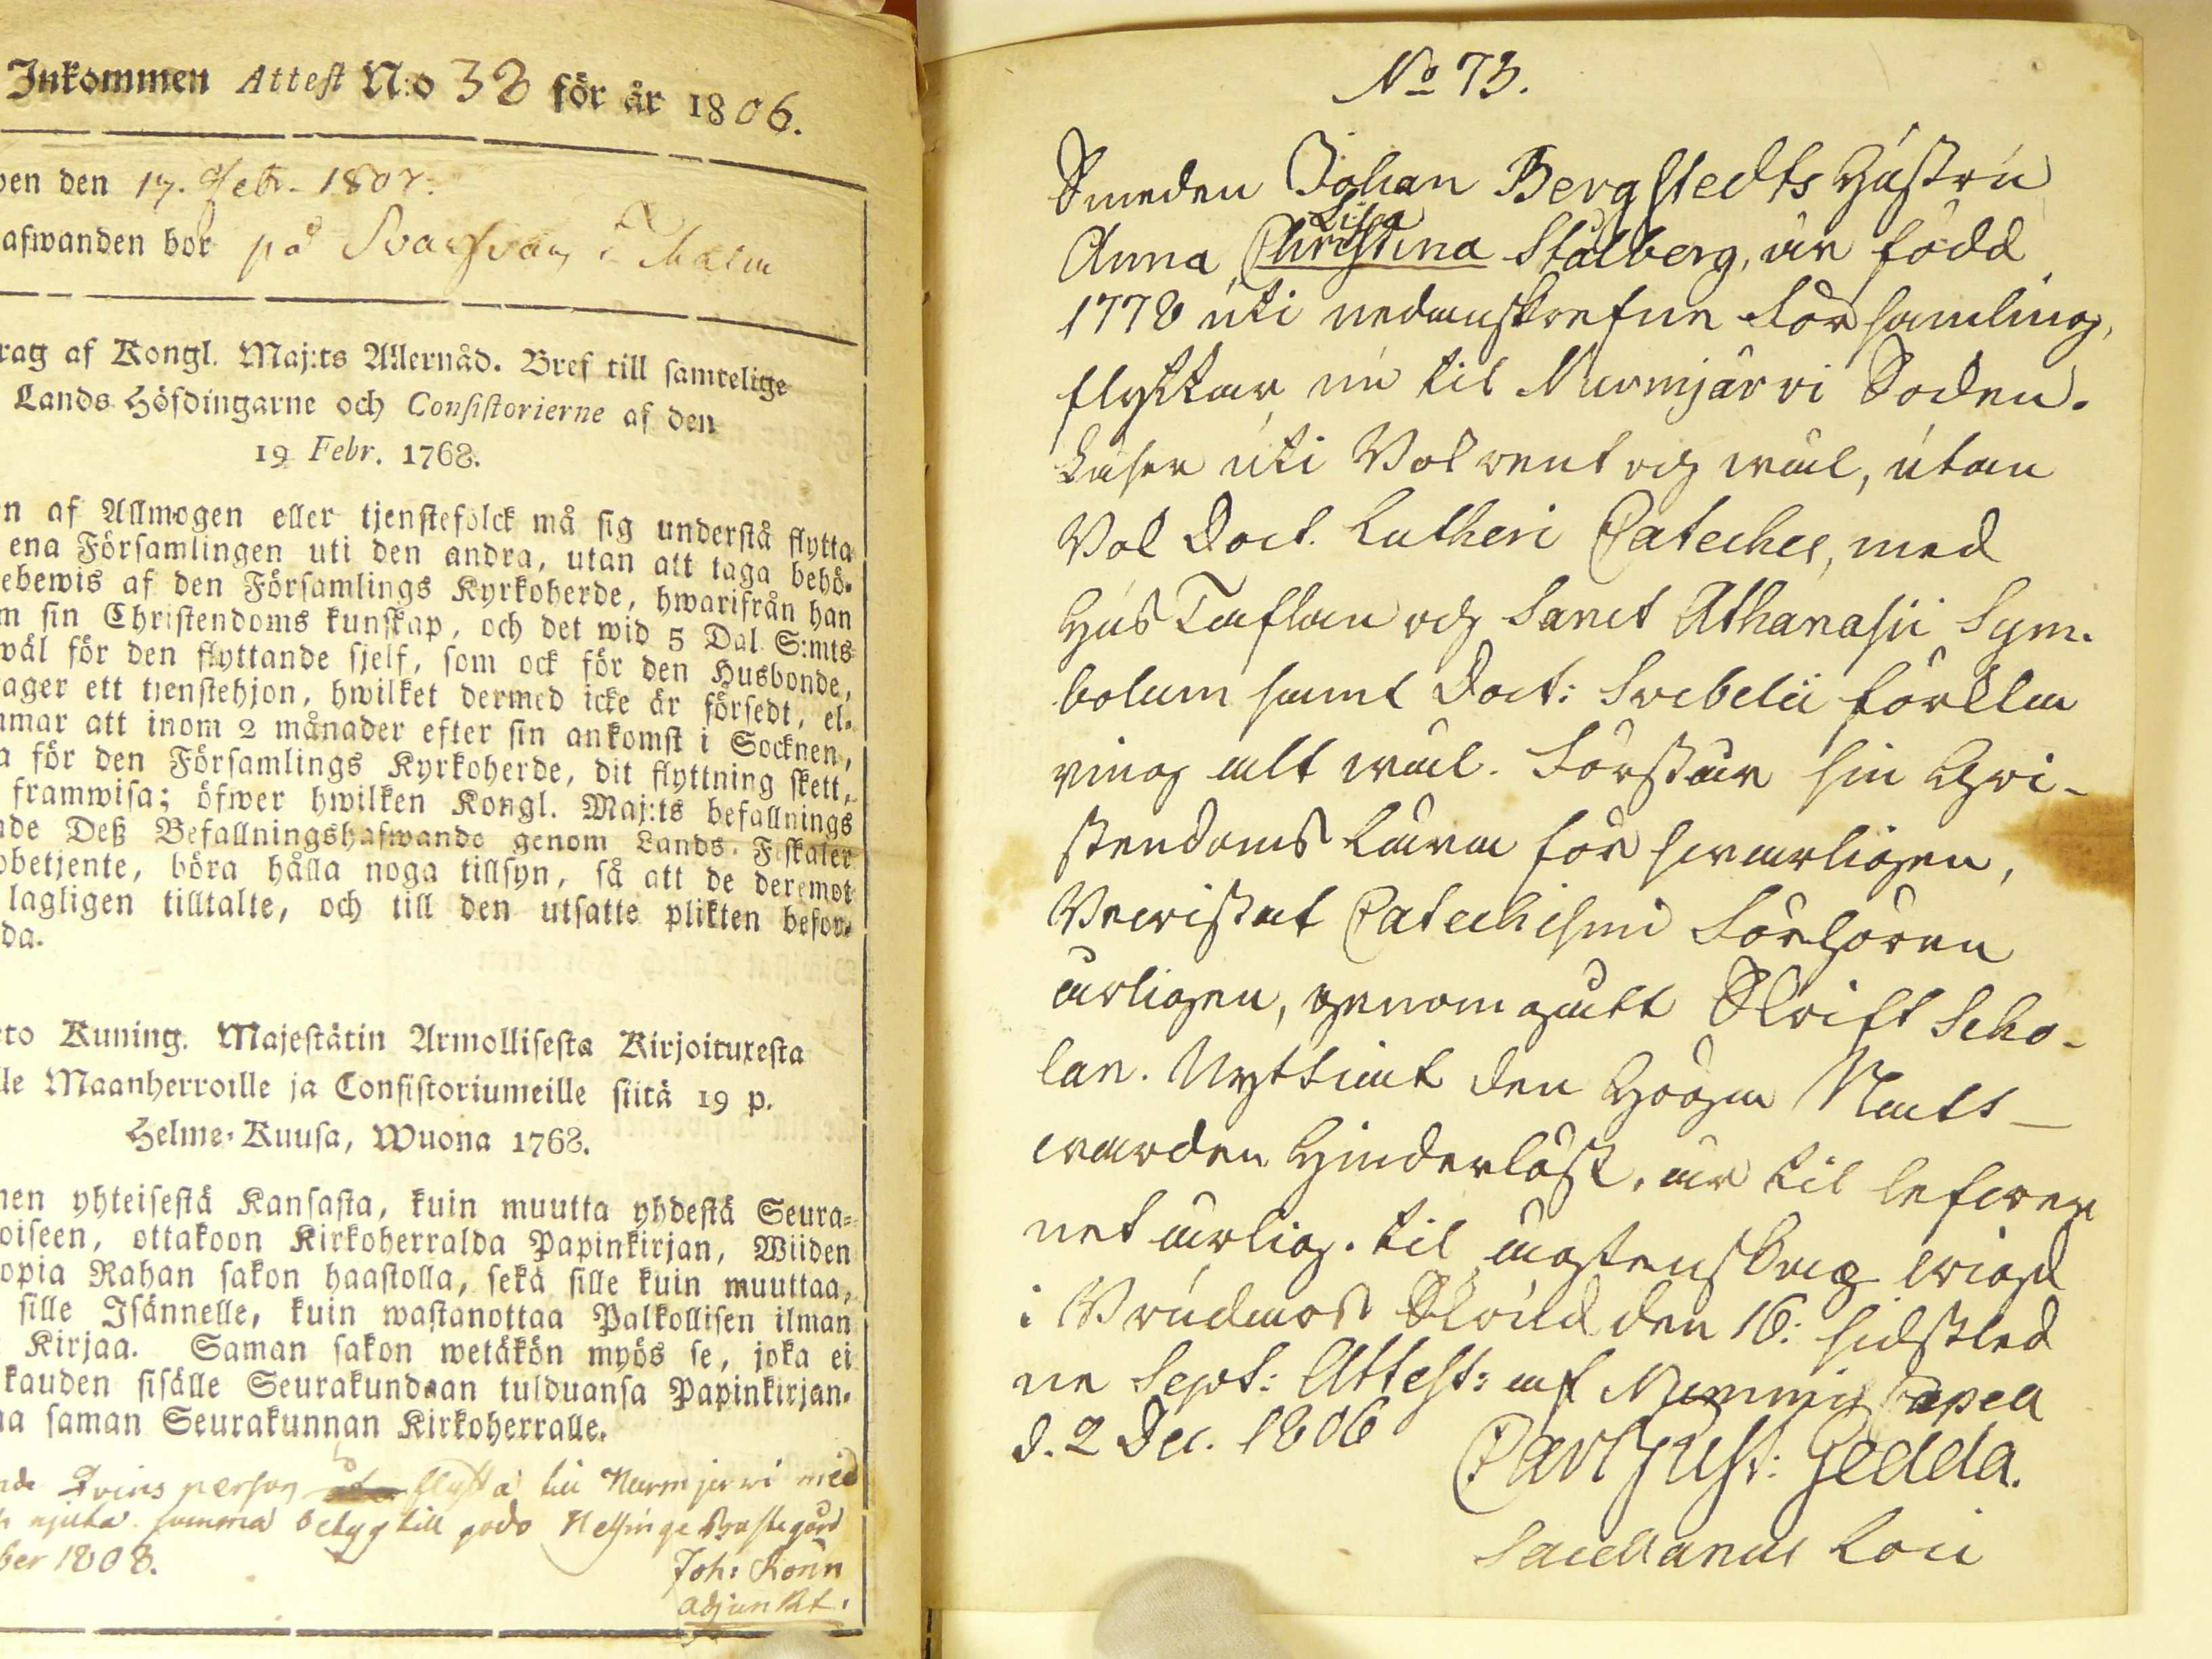 Inkommen Attest N:o 38 för år 1806.
den 17. Febr. 1807.
afwanden bor på i Malm
af Kongl. Maj:ts Allernåd. Bref till samtelige
Lands Höfdingarne och Consistorierne af den
19 Febr. 1768.
n af Allmogen eller tjenstefolck må sig understå flytta
ena Församlingen uti den andra, utan att taga behö-
ebewis af den Församlings Kyrkoherde, hwarifrån han
m sin Christendoms kunskap, och det wid 5 Dal. S:mts
wäl för den flyttande sjelf, som ock för den Husbonde,
ager ett tjenstehjon, hwilket dermed icke är försedt, el-
mmar att inom 2 månader efter sin ankomst i Socknen,
a för den Församlings Kyrkoherde, dit flyttning skett,
framwisa; öfwer hwilken Kongl. Maj:ts befallnings
de Deß Befallningshafwande genom Lands-Fiskaler
betjente, böra hålla noga tillsyn, så att de deremot
lagligen tilltalte, och till den utsatte plikten befor-
da.
to Kuning. Majestätin Armollisesta Kirjoituxesta
lle Maanherroille ja Consistoriumeille siitä 19 p.
Helme-Kuusa, Wuona 1768.
nen yhteisestä Kansasta, kuin muutta yhdestä Seura-
oiseen, ottakoon Kirkoherralda Papinkirjan, Wiiden
opia Rahan sakon haastolla, sekä sille kuin muuttaa,
sille Isännelle, kuin wastanottaa Palkollisen ilman
Kirjaa. Saman sakon wetäkön myös se, joka ei
kauden sisälle Seurakundaan tulduansa Papinkirjan-
a saman Seurakunnan Kirkoherralle.
person flytta till Nurmjerwi med
njuta samma betyg till godo Helsinge Prästegård
ber 1808. Joh: Konin
adjunkt.
No 73.
Smeden Johan Bergstedts Hustru
Lisa
Anna Christina Stålberg, är född
1778 uti nedanskrefne Församling,
flyttar nu til Nurmjärvi Soken.
Läser uti Bok rent och wäl, utan
Bok Doct. Lutheri Cateches, med
Hus Taflan och Sanct Athanasii Sym-
bolum samt Doct: Svebelii förkla
ring alt wäl. Förstår sin Chri-
stendoms Lära för swarligen,
Bewistat Catechismi Förhören
årligen, genomgått Skrift Scho-
lan. Nyttjat den Höga Natt-
warden Hinderlöst, är til lefwer
net ärlig. til ägtenskap wigd
i Brudwos Skrud den 16: sidstled
ne Sept: Attest: af Nummis Capell
d. 2 Dec. 1806 Carl Gust: Gedda.
Sacellanus Loci